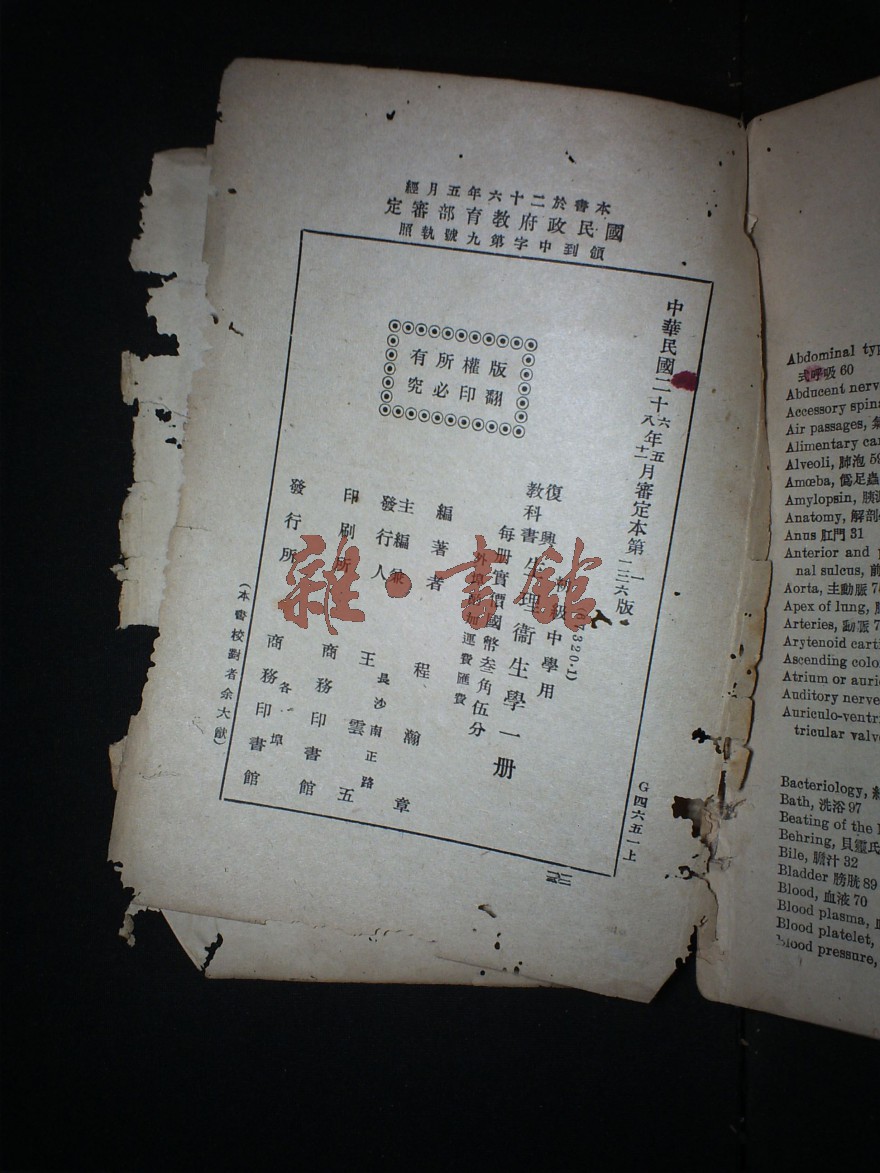 本書於二十六年五月經
國民政府教育部審定
領到中字第九號執照
中華民國二十六年五月審定本第一版
八 十二 二三六
(67320.1)
復興教科書
初級中學用
生理衞生學一册
每册實價國幣叁角伍分
外埠酌加運費匯費
版權所有
翻印必究
編著者 程瀚章
主編兼發行人 王雲五
長沙南正路
印刷所 商務印書館
發行所 商務印書館
各埠
(本書校對者余大猷)
G四六五一上
Abdominal typ
式呼吸 60
Abducent nerv
Accessory spina
Air passages, 氣
Alimentary ca
Alveoli, 肺泡 59
Amœba, 僞足蟲
Amylopsin, 胰
Anatomy, 解剖
Anus 肛門 31
Anterior and
nal sulcus, 前
Aorta, 主動脈 7
Apex of lung,
Arteries, 動脈 7
Arytenoid carti
Ascending colo
Atrium or auri
Auditory nerve
Auriculo-ventri
tricular valv
Bacteriology,
Bath, 洗浴 97
Beating of the
Behring, 貝靈氏
Bile, 膽汁 32
Bladder 膀胱 89
Blood, 血液 70
Blood plasma, 血
Blood platelet,
Blood pressure,
雜·書館